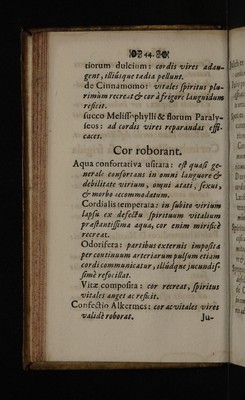 44.
tiorum dulcium: cordis vires adau-
gent, illiúsque tædia pellunt.
de Cinnamomo: vitales spiritus plu-
rimùm recreat & cor à frigore languidum
reficit.
succo Melissophylli & florum Paraly-
seos: ad cordis vires reparandas effi-
caces.
Cor roborant.
Aqua confortativa usitata: est quasi ge-
nerale confortans in omni languore &
debilitate virium, omni ætati, sexui,
& morbo accommodatum.
Cordialis temperata: in subito virium
lapsu ex defectu spirituum vitalium
præstantissima aqua, cor enim mirificè
recreat.
Odorifera: partibus externis imposita
per continuum arteriarum pulsum etiam
cordi communicatur, illúdque jucundis-
simè refocillat.
Vitæ composita: cor recreat, spiritus
vitales auget ac reficit.
Confectio Alkermes: cor ac vitales vires
validè roborat.
Ju-